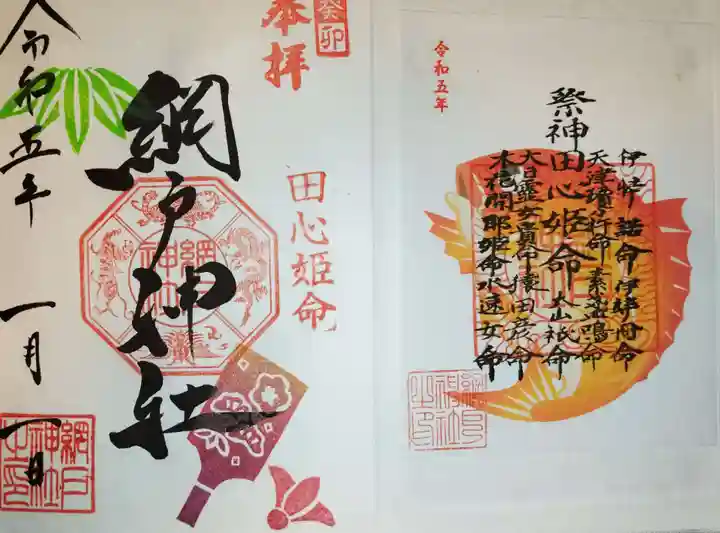 癸卯
奉拝
田心姫命
網戸神社
令和五年 一月 一日
網戸神社
網戸神社之印
令和五年
伊弉諾命 伊弉冉命
天津瓊々杵命 素盞鳴命
祭神 田心姫命 大山祇命
大日孁女貴命 猿田彦命
木花開耶姫命 水速女命
網戸神社之印